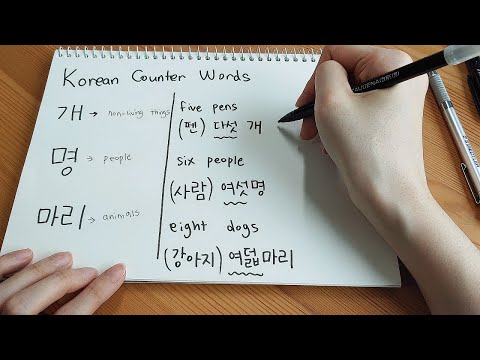 Korean Counter Words
개 → non-living things
명 → people
마리 → animals
five pens
(펜) 다섯 개
six people
(사람) 여섯명
eight dogs
(강아지) 여덟마리